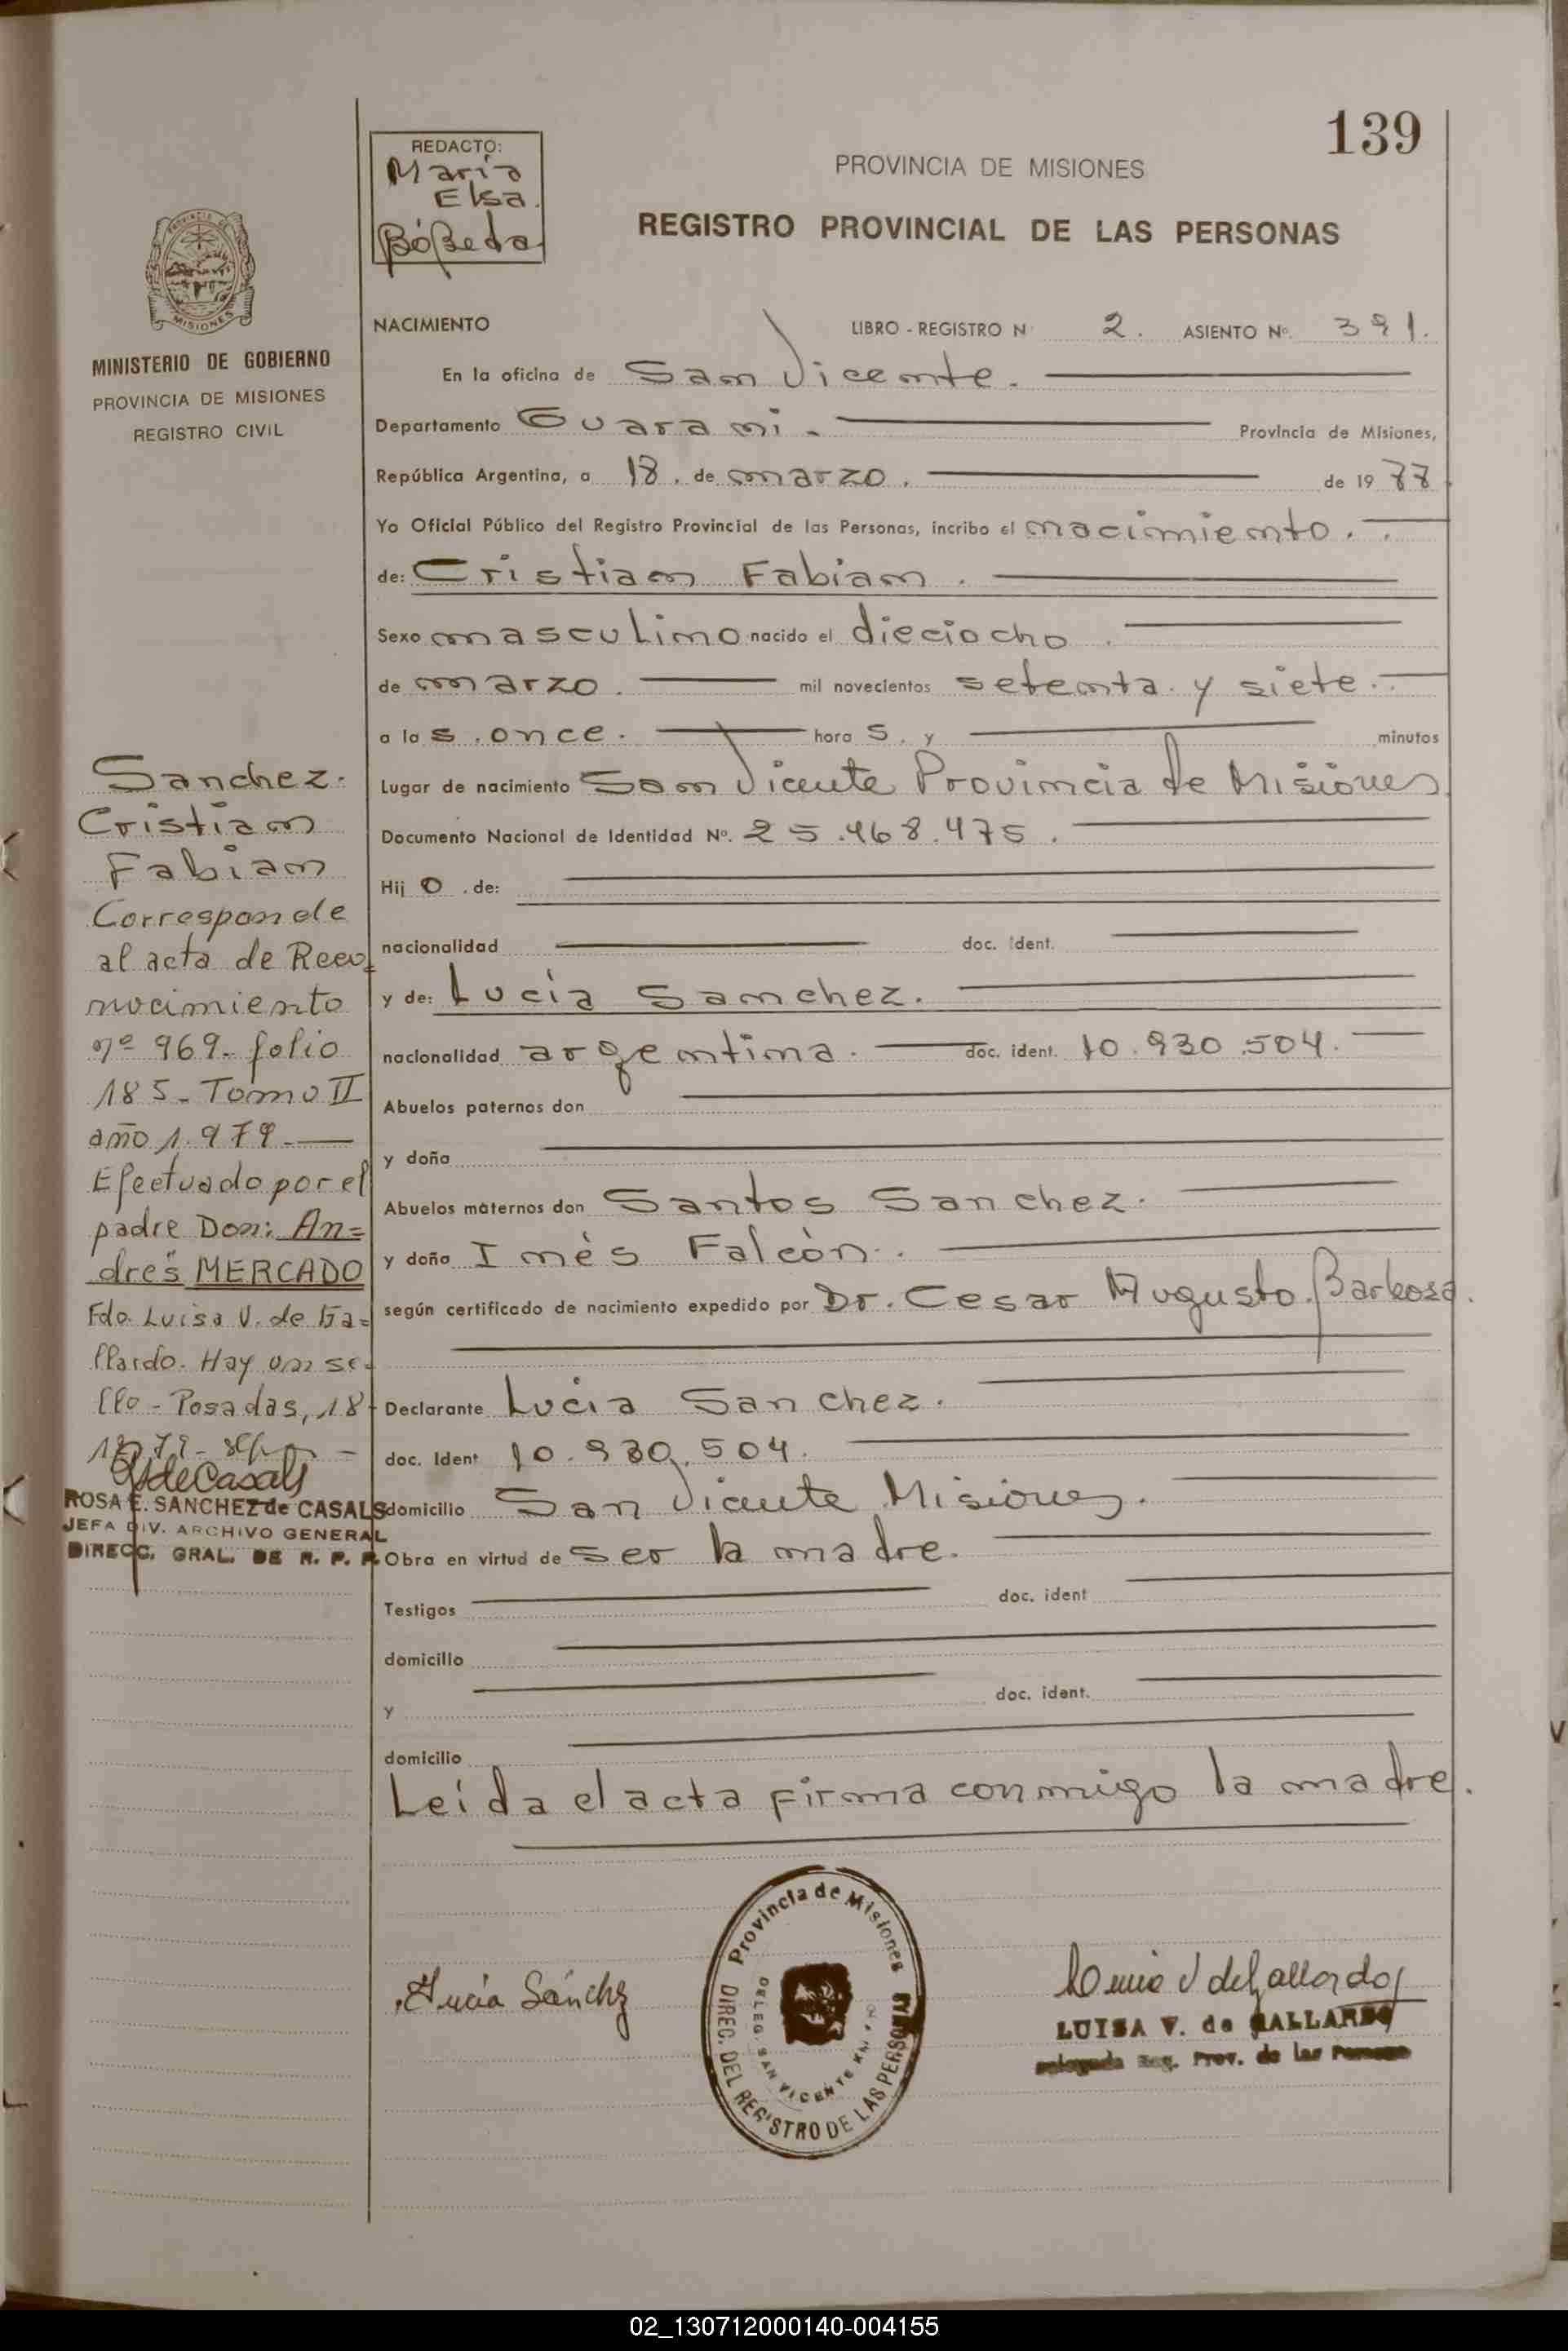 139
REDACTO:
Maria
Elsa.
Bóbeda
PROVINCIA DE MISIONES
REGISTRO PROVINCIAL DE LAS PERSONAS
MISIONES
MINISTERIO DE GOBIERNO
PROVINCIA DE MISIONES
REGISTRO CIVIL
NACIMIENTO LIBRO - REGISTRO N 2. ASIENTO Nº. 391.
En la oficina de San Vicente.
Departamento Guarani. Provincia de Misiones,
República Argentina, a 18. de marzo. de 1977
Yo Oficial Público del Registro Provincial de las Personas, incribo el nacimiento.
de: Cristian Fabian.
Sexo masculino nacido el dieciocho.
de marzo. mil novecientos setenta y siete.
a las. once. horas. y minutos
Lugar de nacimiento San Vicente Provincia de Misiones
Documento Nacional de Identidad Nº. 25.468.475.
Hijo. de:
nacionalidad doc. ident.
y de: Lucia Sanchez.
nacionalidad argentina. doc. ident. 10.930.504.
Abuelos paternos don
y doña
Abuelos maternos don Santos Sanchez.
y doña Inés Falcón.
según certificado de nacimiento expedido por Dr. Cesar Augusto Barbosa.
Declarante Lucia Sanchez.
doc. Ident 10.930.504.
domicilio San Vicente Misiones.
Obra en virtud de ser la madre.
Testigos doc. ident
domicilio
y doc. ident.
domicilio
Leída el acta firma conmigo la madre.
Sanchez.
Cristian
Fabian
Corresponde
al acta de Reco-
nocimiento
nº 969- folio
185- Tomo II
año 1.979-
Efectuado por el
padre Don: An=
drés MERCADO
Fdo. Luisa V. de Ga=
llardo. Hay un se-
llo- Posadas, 18-
ROSA E. SANCHEZ de CASALS
JEFA DIV. ARCHIVO GENERAL
DIRECC. GRAL. DE R. P. P.
Lucia Sánchez
Provincia de Misiones
DIREC. DEL REGISTRO DE LAS PERSONAS
DELEG. SAN VICENTE
LUISA V. de GALLARDO
Delegada Reg. Prov. de las Personas
02_130712000140-004155